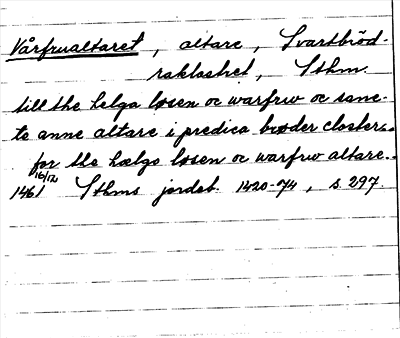 Vårfrualtaret, altare, Svartbröd-
raklostret, Sthm.
till the helga losen oc warfrw oc sanc-
te anne altare i predica brøder closter..
for the hælgo losen oc warfrw altare..
1461 16/12 Sthms jordeb. 1420-74, s. 297.